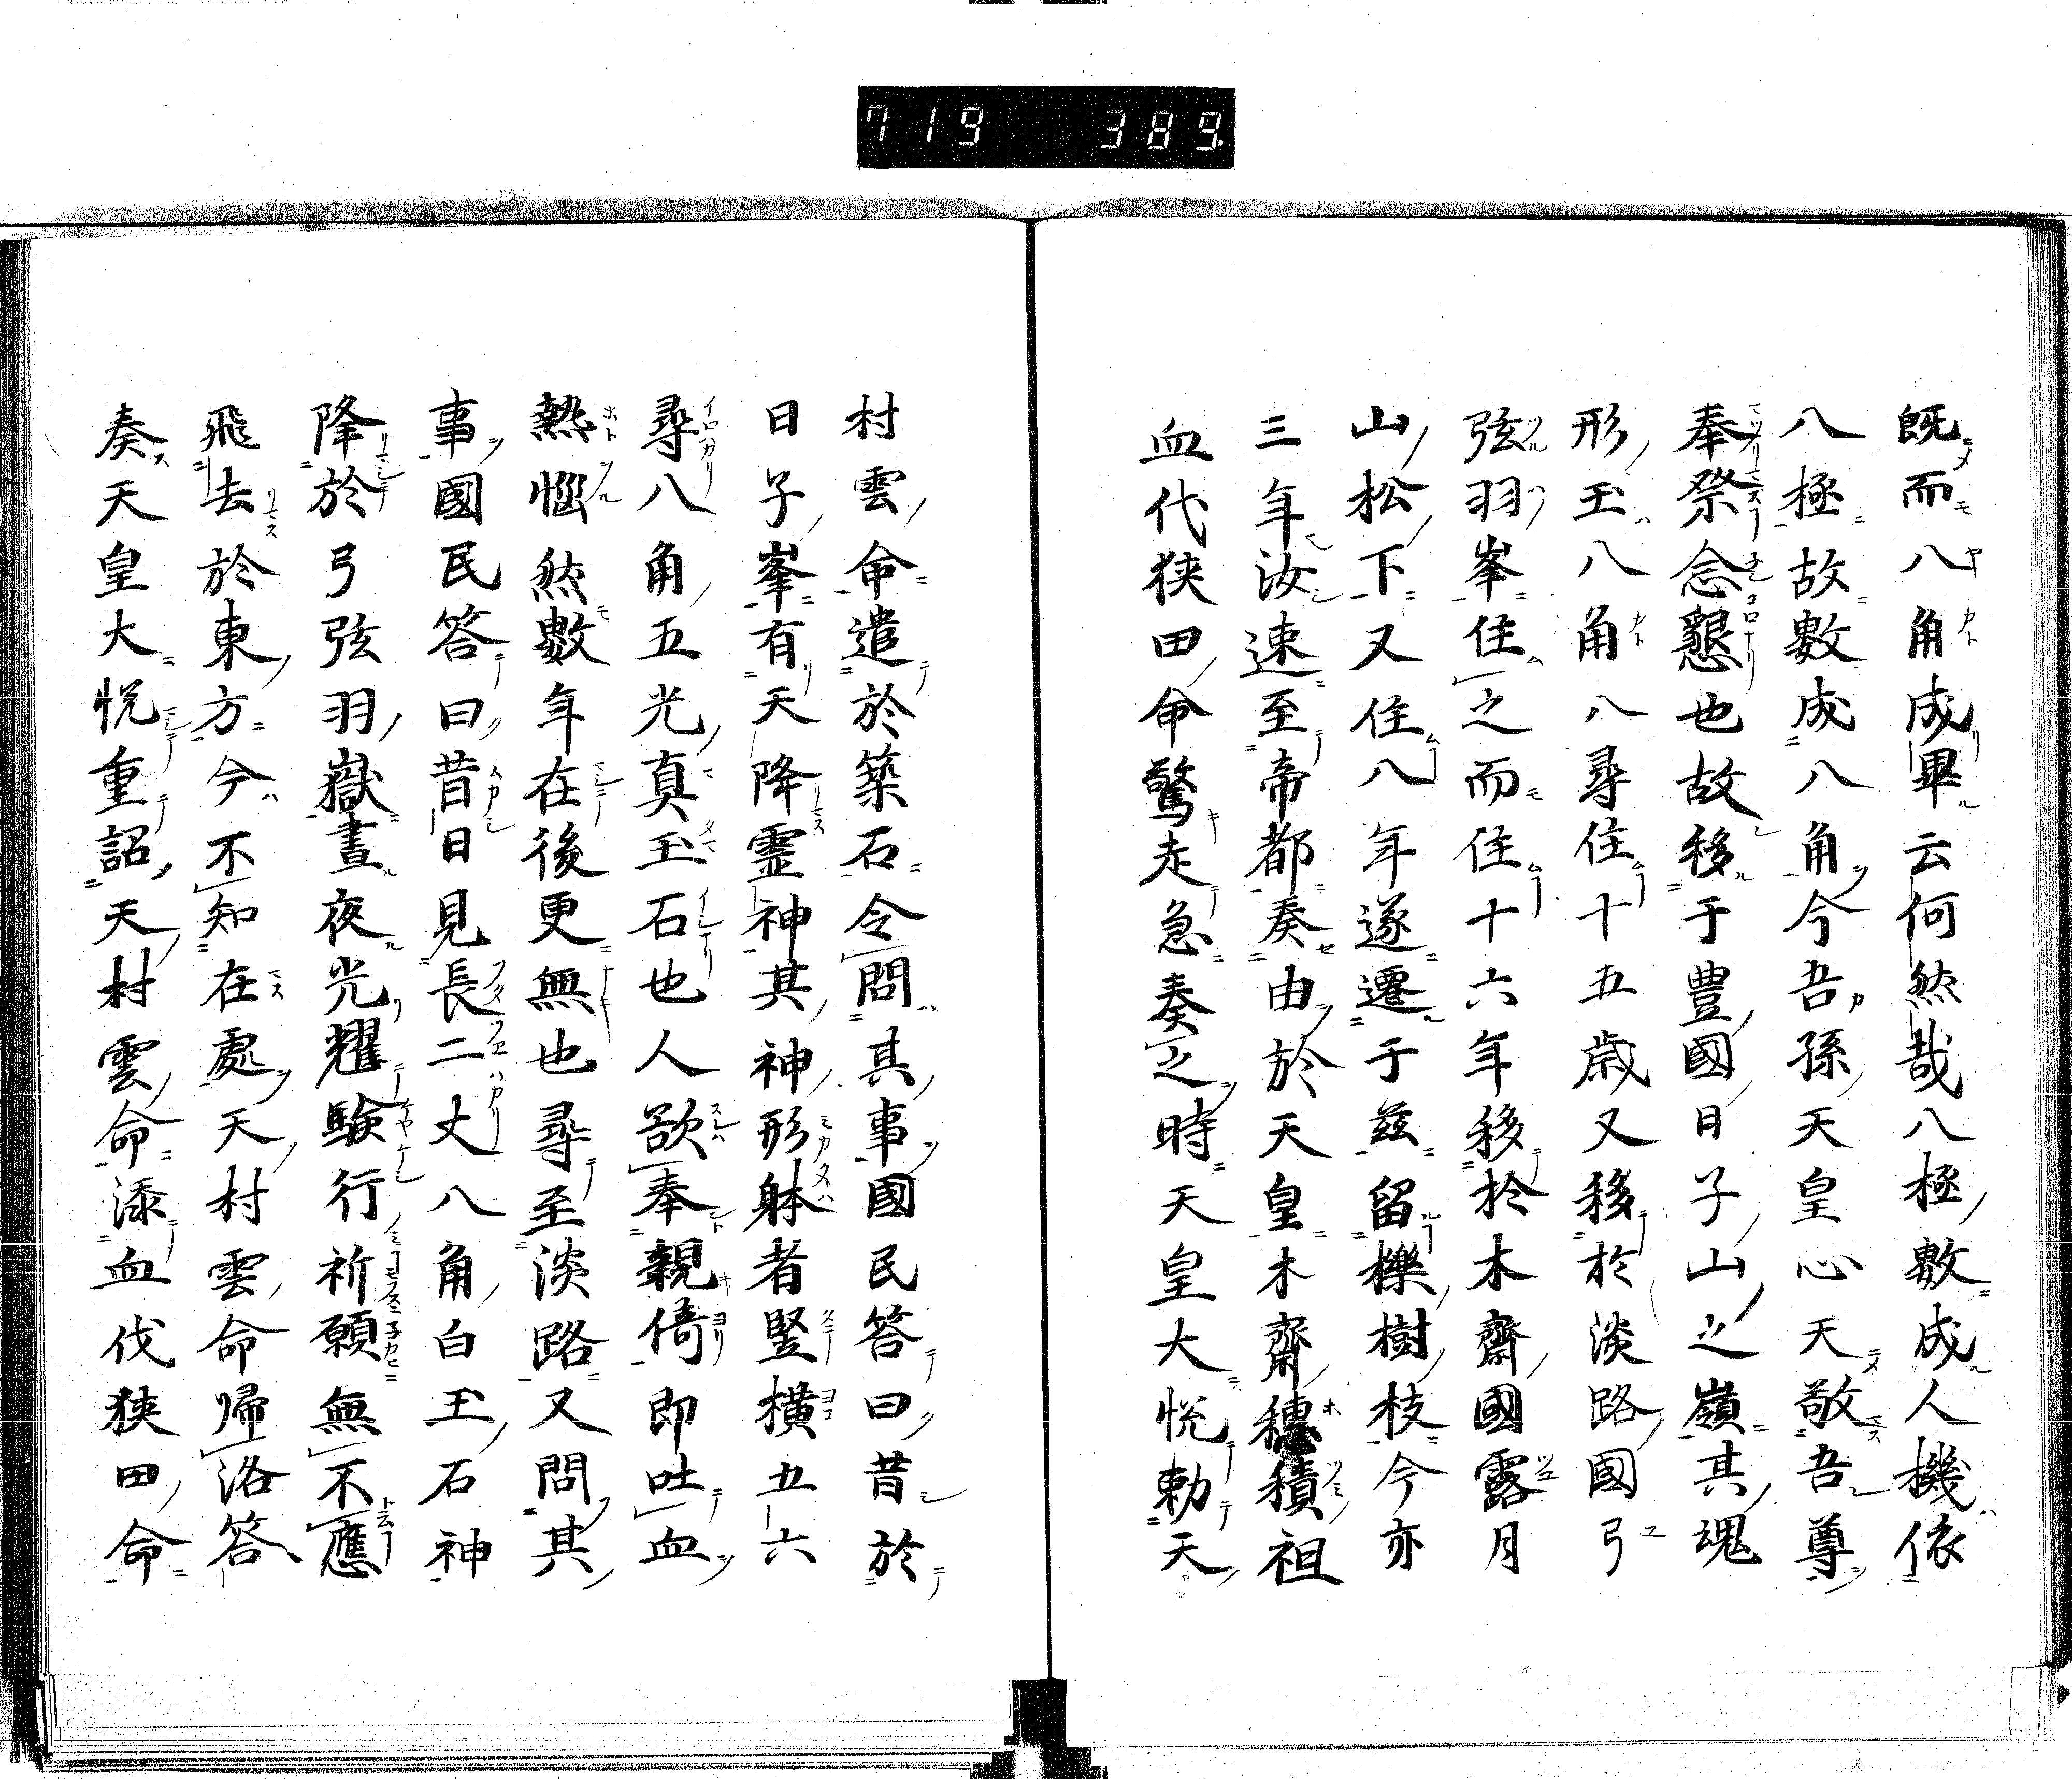 719 389
既而八角成畢云何然哉八極數成人機依
八極故數成八角今吾孫天皇心天敬吾尊
奉祭念懇也故移于豊國日子山之嶺其魂
形玉八角八尋住十五歳又移於淡路國弓
弦羽峯住之而住十六年移於木齋國露月
山松下又住八年遂遷于茲留櫟樹枝今亦
三年汝速至帝都奏由於天皇木齋穗積祖
血代狭田命驚走急奏之時天皇大悦勅天
村雲命遣於築石令問其事國民答曰昔於
日子峯有天降霊神其神形躰者竪横五六
尋八角五光真玉石也人欲奉親倚即吐血
熱惱然數年在後更無也尋至淡路又問其
事國民答曰昔日見長二丈八角白玉石神
降於弓弦羽嶽晝夜光耀驗行祈願無不應
飛去於東方今不知在處天村雲命帰洛答
奏天皇大悦重詔天村雲命添血伐狭田命